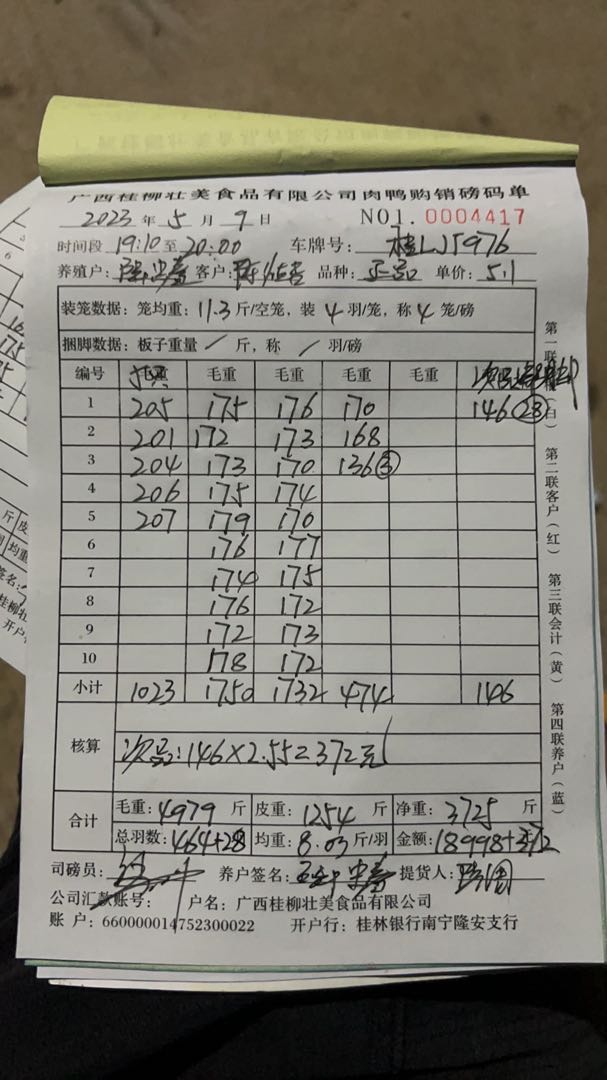 广西桂柳壮美食品有限公司肉鸭购销磅码单
2023年5月9日 NO1.0004417
时间段 19:10至20:00 车牌号: 桂LJ5976
养殖户: 客户: 品种: 正品 单价: 5.1
装笼数据: 笼均重: 11.3斤/空笼, 装4羽/笼, 称4笼/磅
捆脚数据: 板子重量 / 斤, 称 / 羽/磅
编号 毛重 毛重 毛重 毛重 次品
1 205 175 176 170 146 (28)
2 201 172 173 168
3 204 173 170 136 (3)
4 206 175 174
5 207 179 170
6 176 177
7 174 175
8 176 172
9 172 173
10 178 172
小计 1023 1750 1732 474 146
核算 次品:146×2.55=372元
合计 毛重:4979斤 皮重:1254斤 净重:3725斤
总羽数:464+28 均重:8.03斤/羽 金额:18998+372
司磅员: 养户签名: 提货人:
公司汇款账号: 户名: 广西桂柳壮美食品有限公司
账 户: 660000014752300022 开户行: 桂林银行南宁隆安支行
第一联 (白)
第二联客户(红)
第三联会计(黄)
第四联养户(蓝)